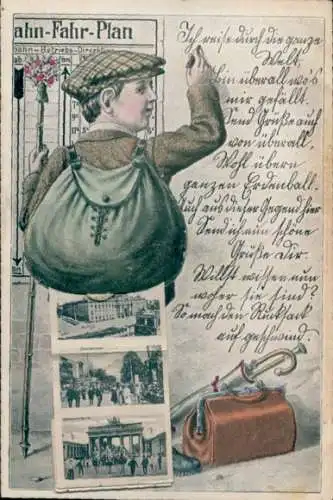 ahn-Fahr-Plan
Ich reise durch die ganze
Welt,
bin überall wo's
mir gefällt.
Send Grüße auch
von überall,
Wohl übern
ganzen Erdenball.
Auch aus dieser Gegend hier
Send ich nun schöne
Grüße Dir.
Willst wissen nun
woher sie sind?
So mach den Rucksack
auf geschwind.